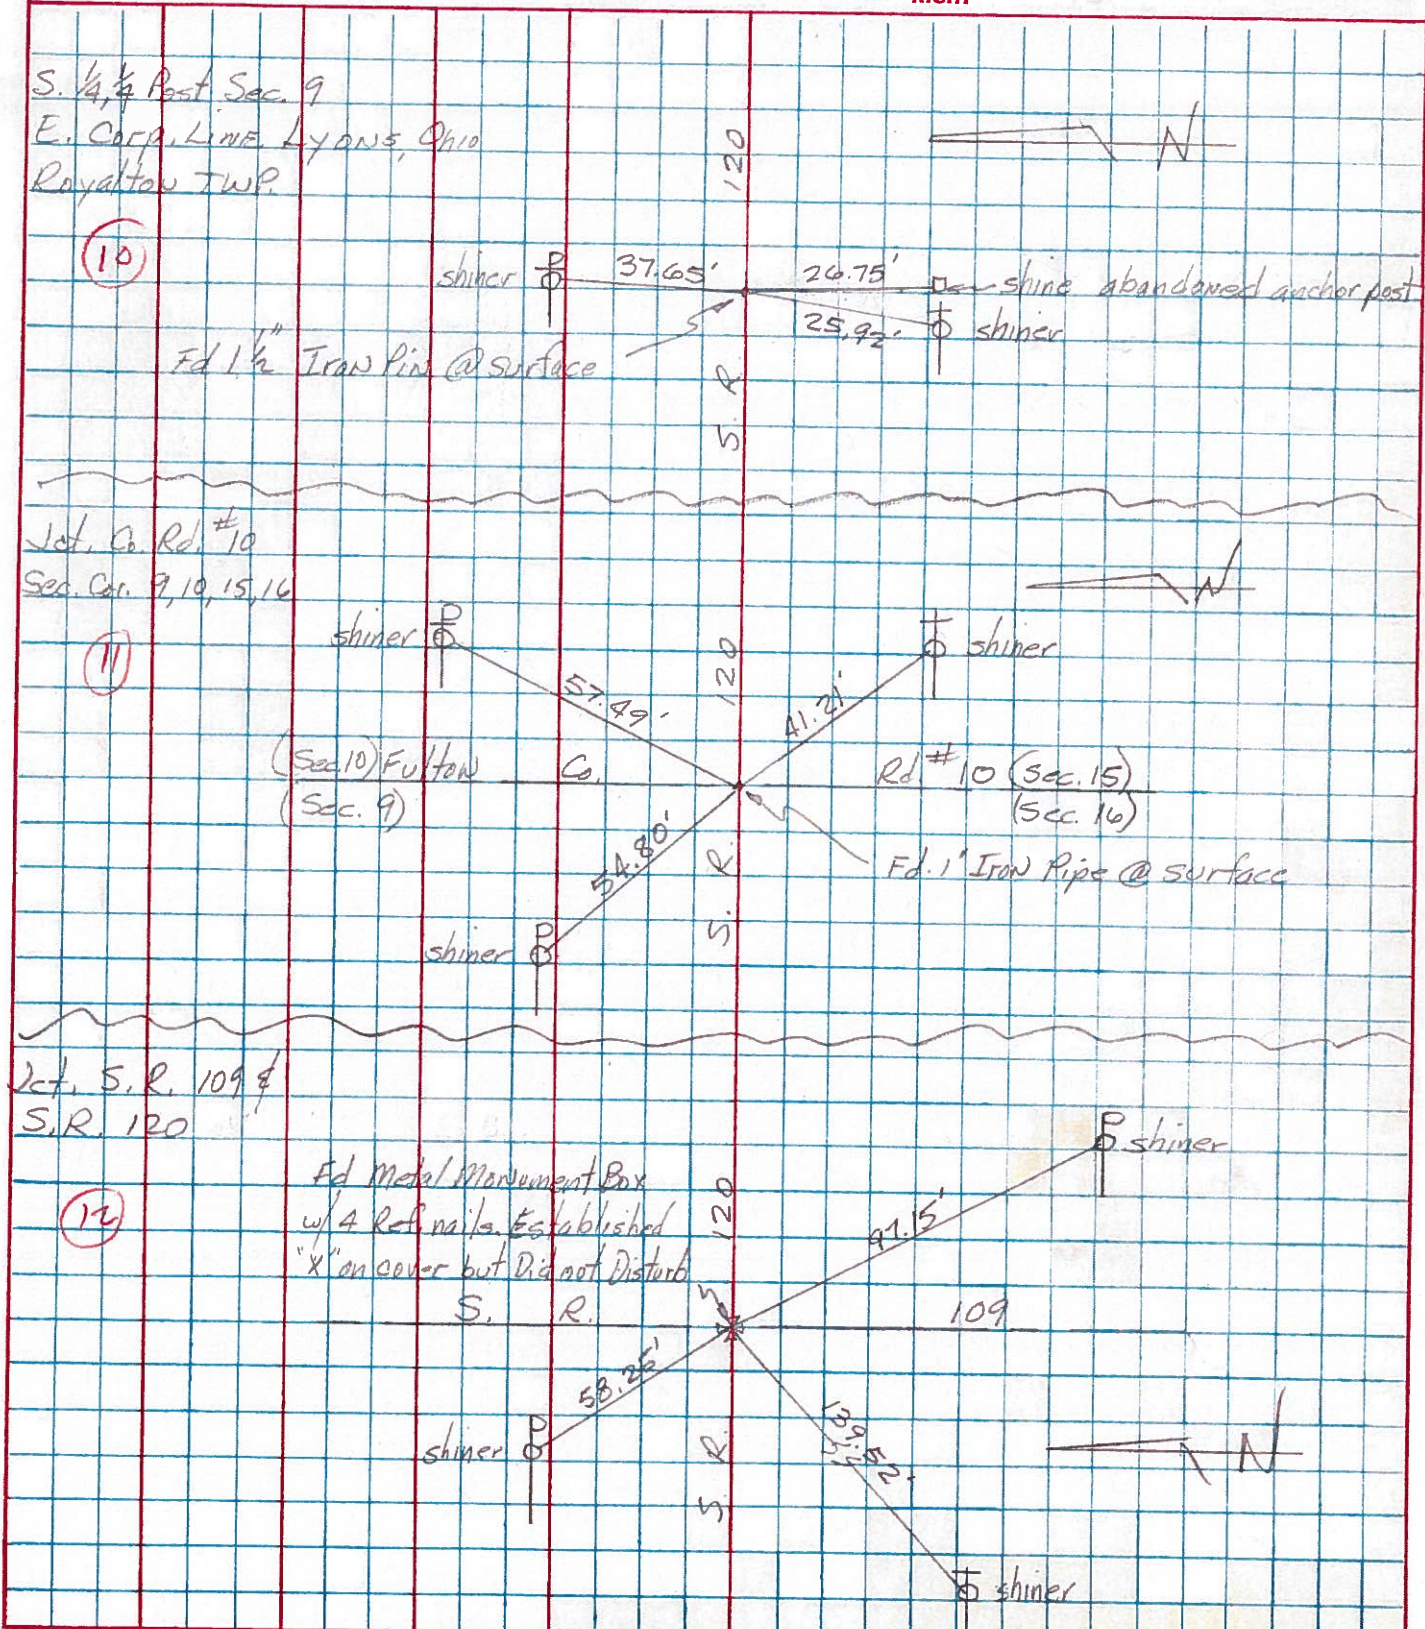 S. 1/4, 1/4 Post Sec. 9
E. Corp. Line Lyons, Ohio
Royalton TWP.
10
120
N
shiner P 37.65' 26.75' shine abandoned anchor post
25.92' T shiner
Fd 1 1/2" Iron Pin @ surface
S. R.
Jct. Co. Rd. #10
Sec. Cor. 9, 10, 15, 16
11
N
shiner P
120
T shiner
57.49'
41.21'
(Sec. 10) Fulton Co. Rd #10 (Sec. 15)
(Sec. 9)
(Sec. 16)
54.80'
S. R.
Fd. 1" Iron Pipe @ surface
shiner P
Jct. S.R. 109 &
S.R. 120
12
P shiner
Fd Metal Monument Box
w/ 4 Ref. nails. Established
"X" on cover but Did not Disturb
120
S. R. 109
58.25'
139.52'
shiner P
S. R.
N
T shiner